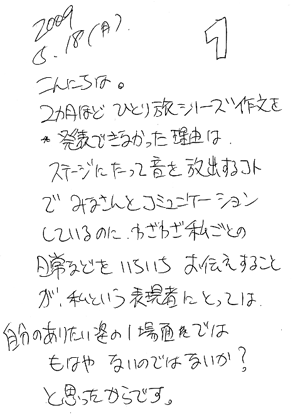 2009
5.18(月)
1
こんにちは。
2カ月ほど ひとり旅シリーズ作文を
*発表できなかった理由は
ステージにたって音を放出するコト
で みなさんとコミュニケーション
しているのに、わざわざ私ごとの
日常などを いちいち お伝えすること
が、私という表現者にとっては、
自分のありたい姿の1場面では
もはや ないのではないか?
と思ったからです。